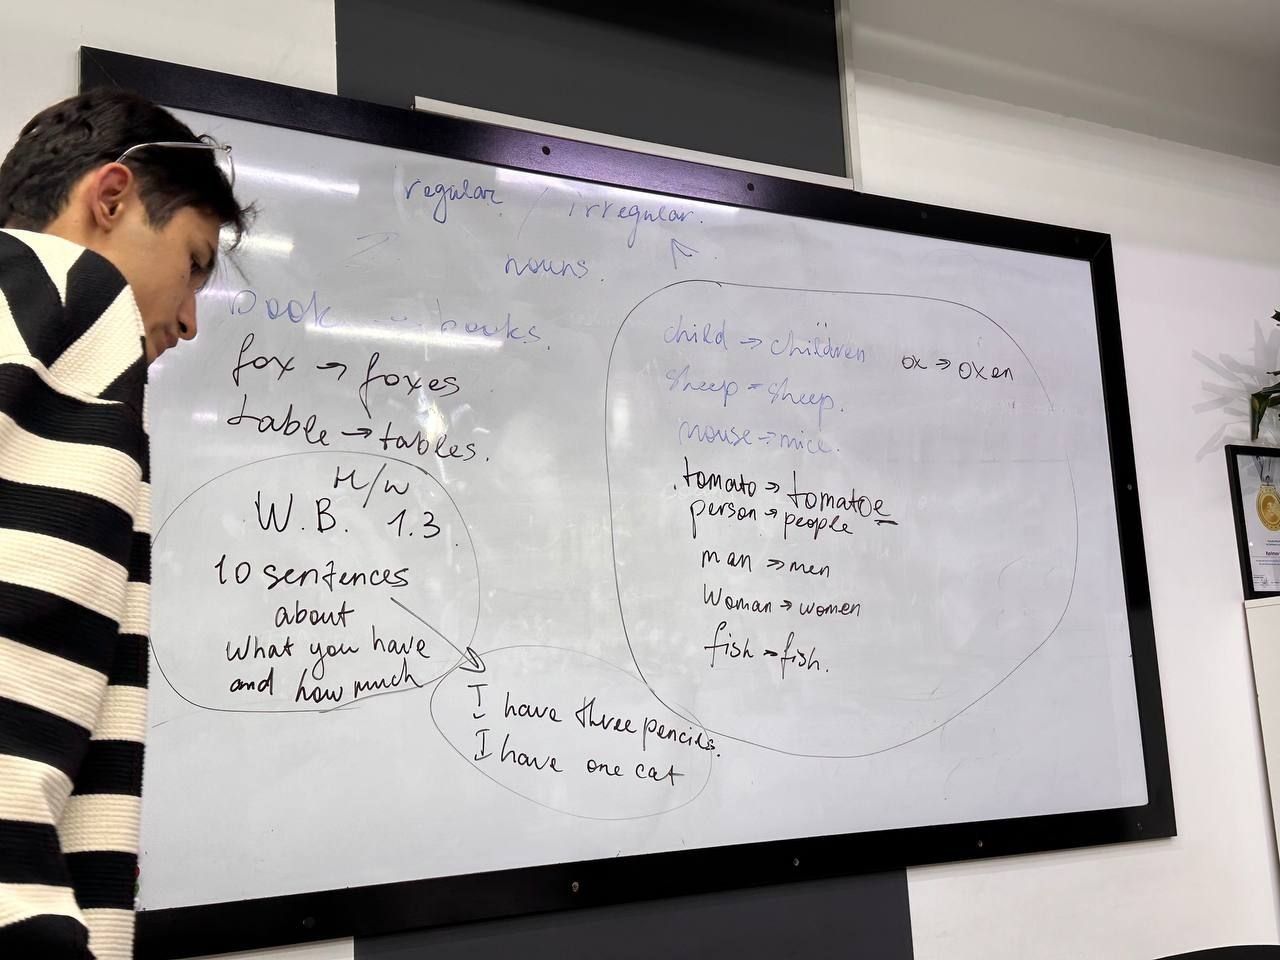 regular / irregular.
nouns.
book → books.
fox → foxes
table → tables.
H/W
W.B. 1.3
10 sentences
about
what you have
and how much
I have three pencils.
I have one cat
child → children
ox → oxen
sheep = sheep.
mouse → mice.
tomato → tomatoe
person → people
man → men
woman → women
fish → fish.